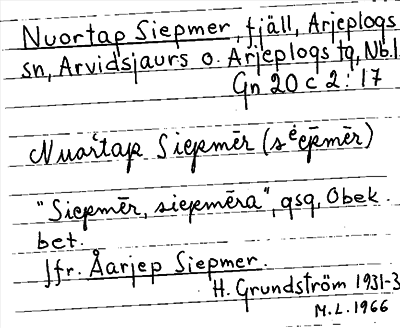 Nuortap Siepmer, fjäll, Arjeplogs
sn, Arvidsjaurs o. Arjeplogs tg, Nb.l.
Gn 20 c 2:17
Nuortap Siepmēr (siepmēr)
"Siepmēr, siepmēra", gsg, Obek.
bet.
Jfr. Åarjep Siepmer.
H. Grundström 1931-3
M.L. 1966